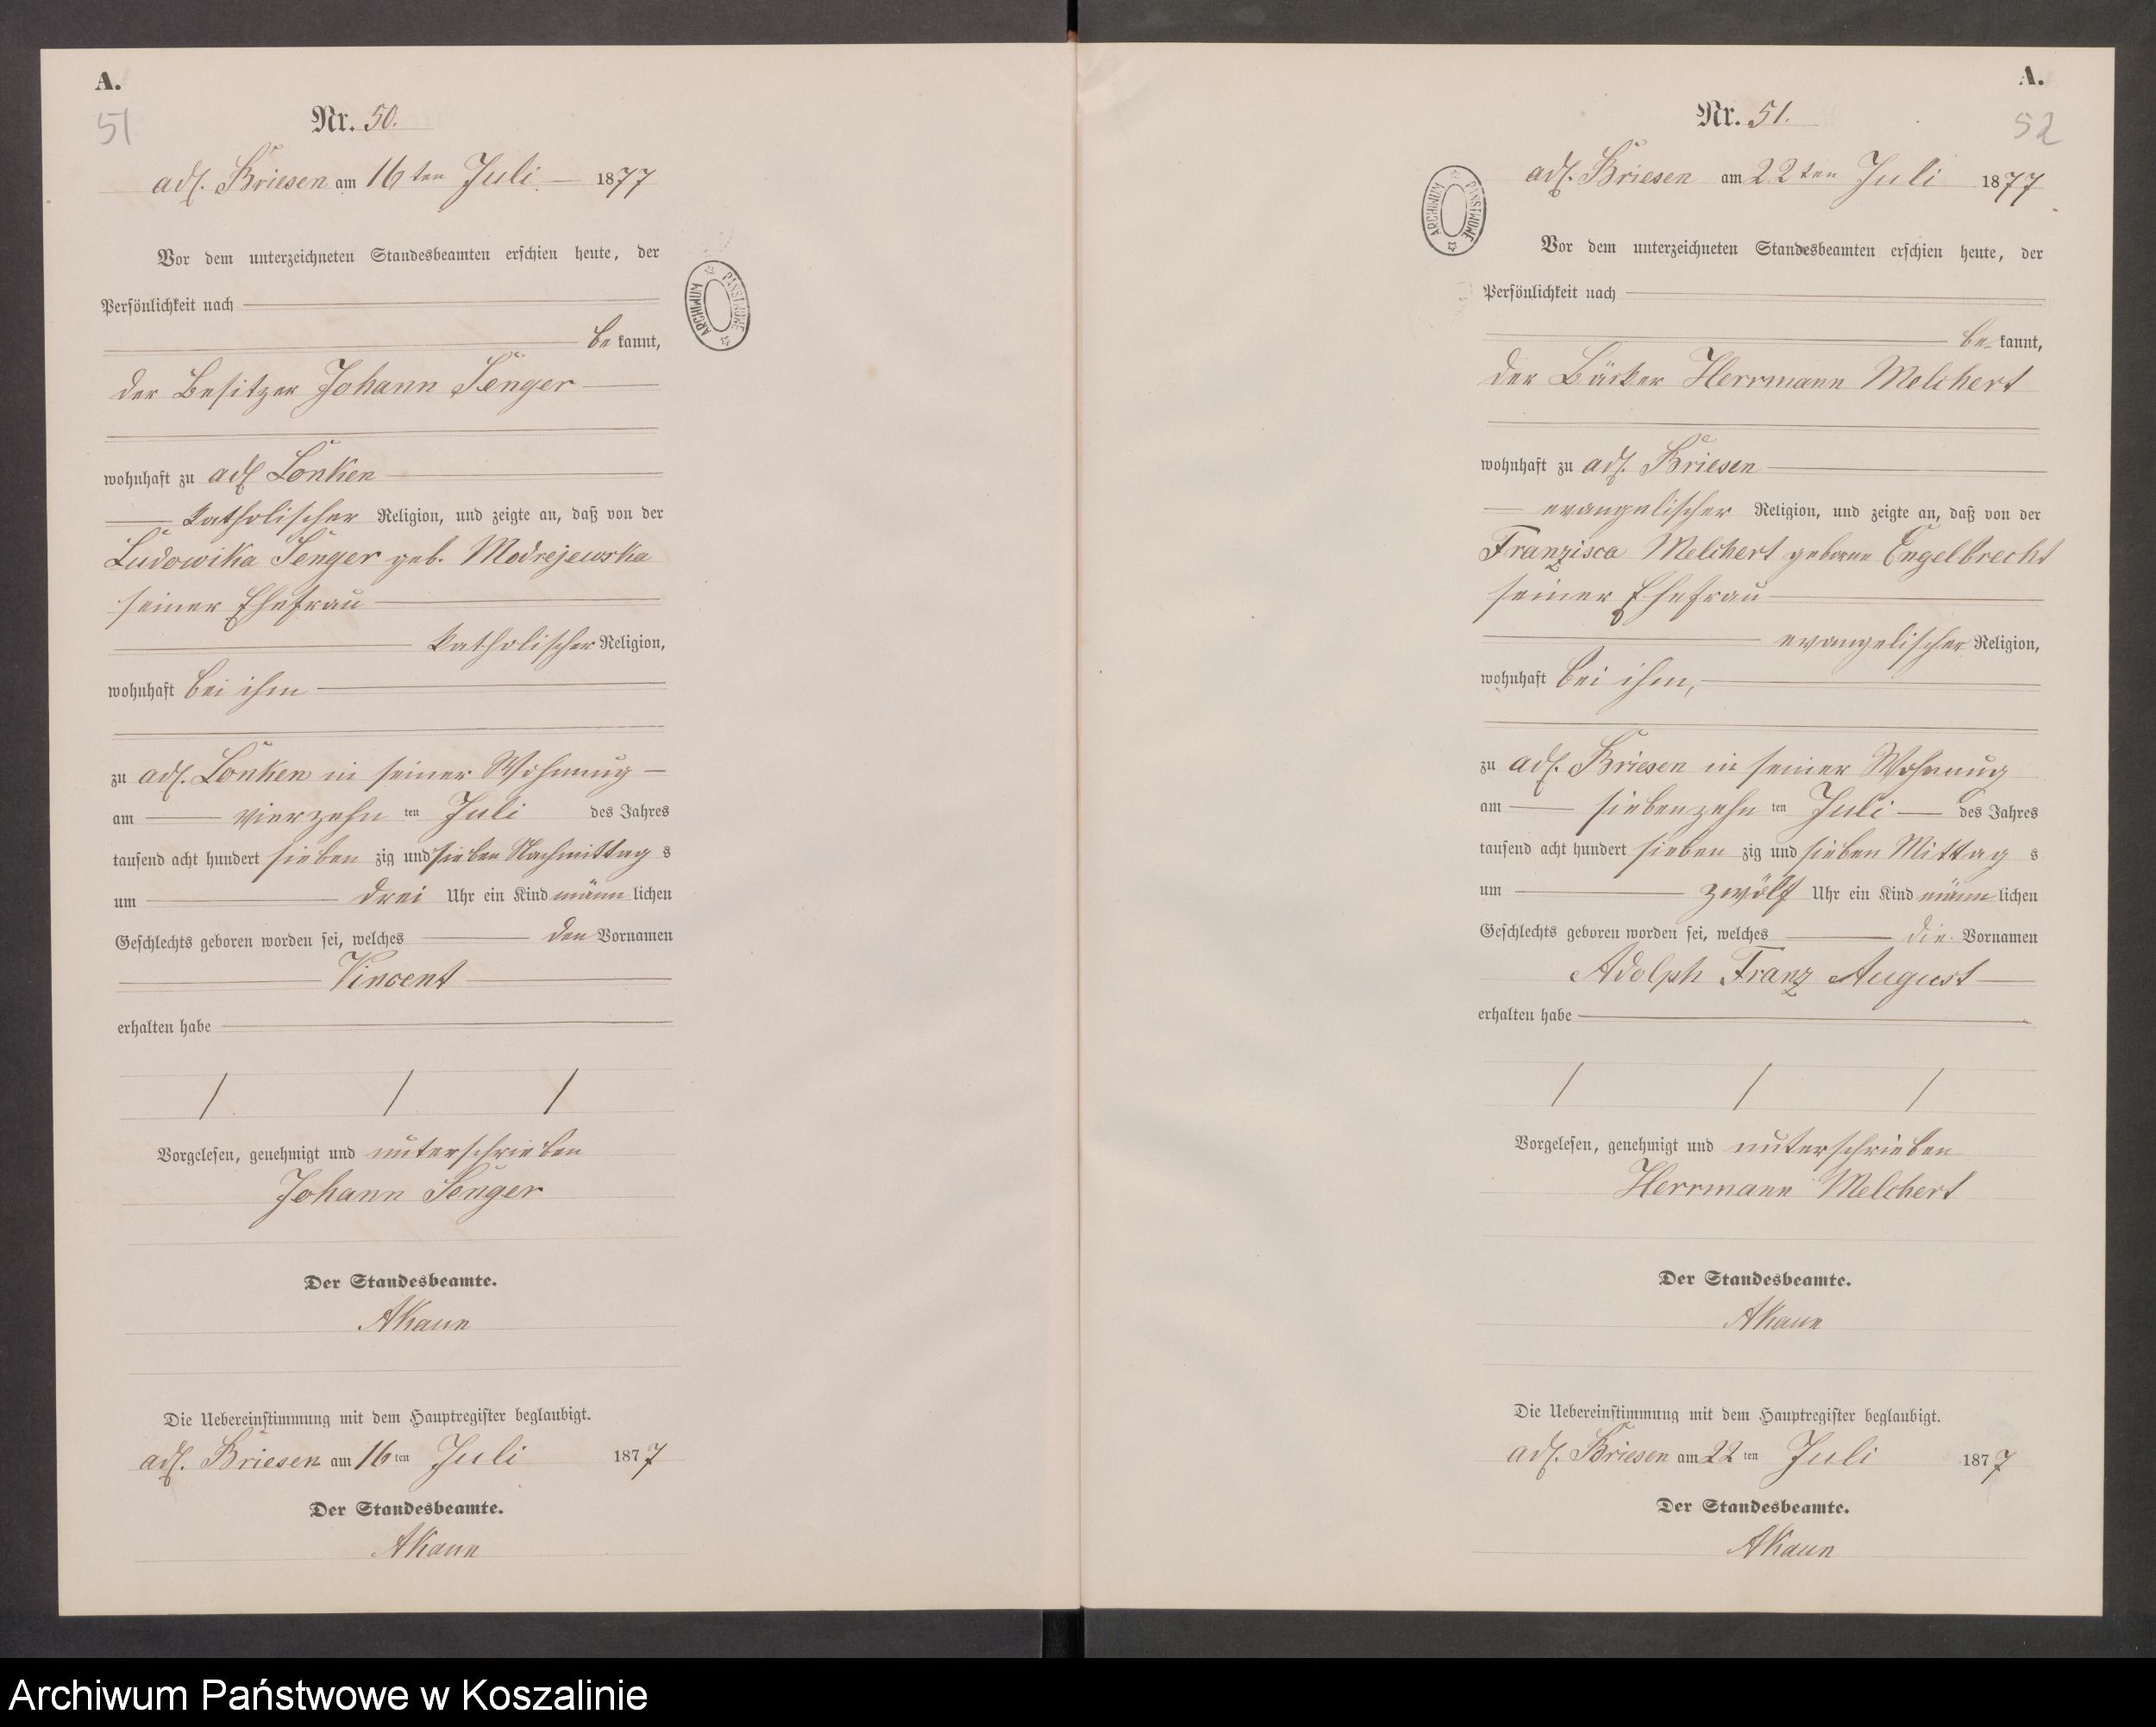 A.
51
Nr. 50.
adl. Briesen am 16ten Juli 1877
Vor dem unterzeichneten Standesbeamten erschien heute, der
Persönlichkeit nach
be kannt,
der Besitzer Johann Senger
wohnhaft zu adl Lonken
katholischer Religion, und zeigte an, daß von der
Ludowika Senger geb. Modrejewska
seiner Ehefrau
katholischer Religion,
wohnhaft bei ihm
zu adl. Lonken in seiner Wohnung
am vierzehn ten Juli des Jahres
tausend acht hundert sieben zig und sieben Nachmittag s
um drei Uhr ein Kind männ lichen
Geschlechts geboren worden sei, welches den Vornamen
Vincent
erhalten habe
Vorgelesen, genehmigt und unterschrieben
Johann Senger
Der Standesbeamte.
AKaun
Die Uebereinstimmung mit dem Hauptregister beglaubigt.
adl. Briesen am 16ten Juli 1877
Der Standesbeamte.
AKaun
ARCHIWUM PAŃSTWOWE
A.
52
Nr. 51.
adl. Briesen am 22ten Juli 1877
ARCHIWUM PAŃSTWOWE
Vor dem unterzeichneten Standesbeamten erschien heute, der
Persönlichkeit nach
be- kannt,
der Bäcker Herrmann Melchert
wohnhaft zu adl. Briesen
evangelischer Religion, und zeigte an, daß von der
Franzisca Melchert geborene Engelbrecht
seiner Ehefrau
evangelischer Religion,
wohnhaft bei ihm,
zu adl. Briesen in seiner Wohnung
am siebenzehn ten Juli des Jahres
tausend acht hundert sieben zig und sieben Mittag s
um zwölf Uhr ein Kind männ lichen
Geschlechts geboren worden sei, welches die Vornamen
Adolph Franz August
erhalten habe
Vorgelesen, genehmigt und unterschrieben
Herrmann Melchert
Der Standesbeamte.
AKaun
Die Uebereinstimmung mit dem Hauptregister beglaubigt.
adl. Briesen am 22ten Juli 1877
Der Standesbeamte.
AKaun
Archiwum Państwowe w Koszalinie